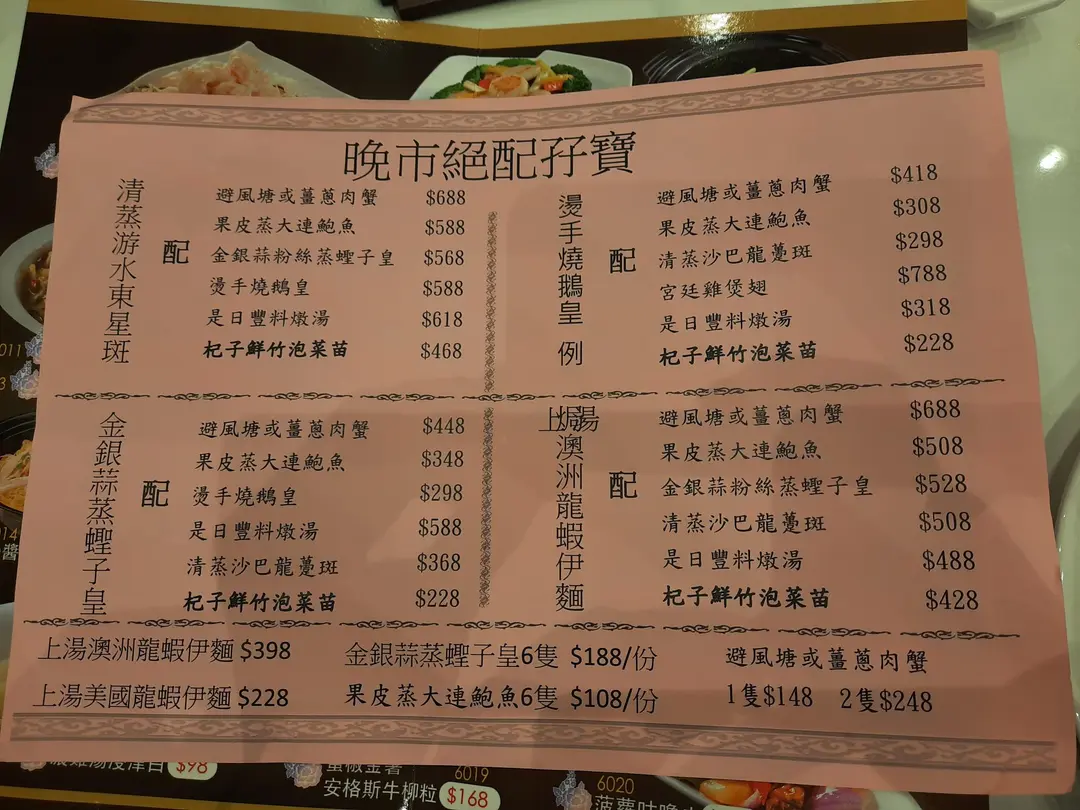 晚市絕配孖寶
清蒸游水東星斑
配
避風塘或薑蔥肉蟹 $688
果皮蒸大連鮑魚 $588
金銀蒜粉絲蒸蟶子皇 $568
燙手燒鵝皇 $588
是日豐料燉湯 $618
杞子鮮竹泡菜苗 $468
燙手燒鵝皇 例
配
避風塘或薑蔥肉蟹 $418
果皮蒸大連鮑魚 $308
清蒸沙巴龍躉斑 $298
宮廷雞煲翅 $788
是日豐料燉湯 $318
杞子鮮竹泡菜苗 $228
金銀蒜蒸蟶子皇
配
避風塘或薑蔥肉蟹 $448
果皮蒸大連鮑魚 $348
燙手燒鵝皇 $298
是日豐料燉湯 $588
清蒸沙巴龍躉斑 $368
杞子鮮竹泡菜苗 $228
上湯
焗澳洲龍蝦伊麵
配
避風塘或薑蔥肉蟹 $688
果皮蒸大連鮑魚 $508
金銀蒜粉絲蒸蟶子皇 $528
清蒸沙巴龍躉斑 $508
是日豐料燉湯 $488
杞子鮮竹泡菜苗 $428
上湯澳洲龍蝦伊麵 $398
上湯美國龍蝦伊麵 $228
金銀蒜蒸蟶子皇6隻 $188/份
果皮蒸大連鮑魚6隻 $108/份
避風塘或薑蔥肉蟹
1隻$148 2隻$248
$98
6019
安格斯牛柳粒 $168
6020